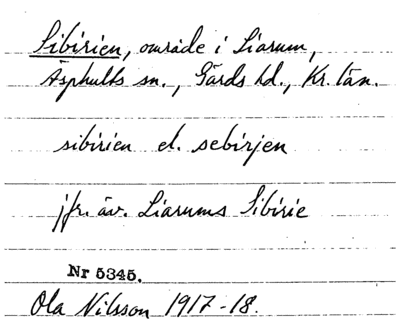 Sibirien, område i Liarum,
Äsphults sn., Gärds hd., Kr. län.
sibirien el. sebirjen
jfr. äv. Liarums Sibirie
Nr 5345.
Ola Nilsson 1917-18.